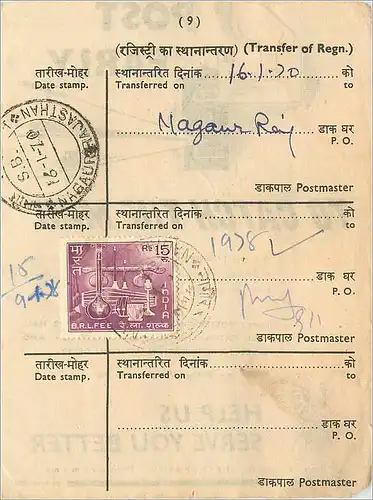 (9)
(रजिस्ट्री का स्थानान्तरण) (Transfer of Regn.)
तारीख-मोहर स्थानान्तरित दिनांक 16.1.70 को
Date stamp. Transferred on to
Nagaur Raj डाक घर
P. O.
NAGAUR RAJASTHAN
S.B.
16-1-70
डाकपाल Postmaster
तारीख-मोहर स्थानान्तरित दिनांक को
Date stamp. Transferred on to
1978
भारत Rs 15 रु
INDIA
B.R.L. FEE रे.ला. शुल्क
डाक घर
P. O.
डाकपाल Postmaster
तारीख-मोहर स्थानान्तरित दिनांक को
Date stamp. Transferred on to
डाक घर
P. O.
HELP US
SERVE YOU BETTER
डाकपाल Postmaster